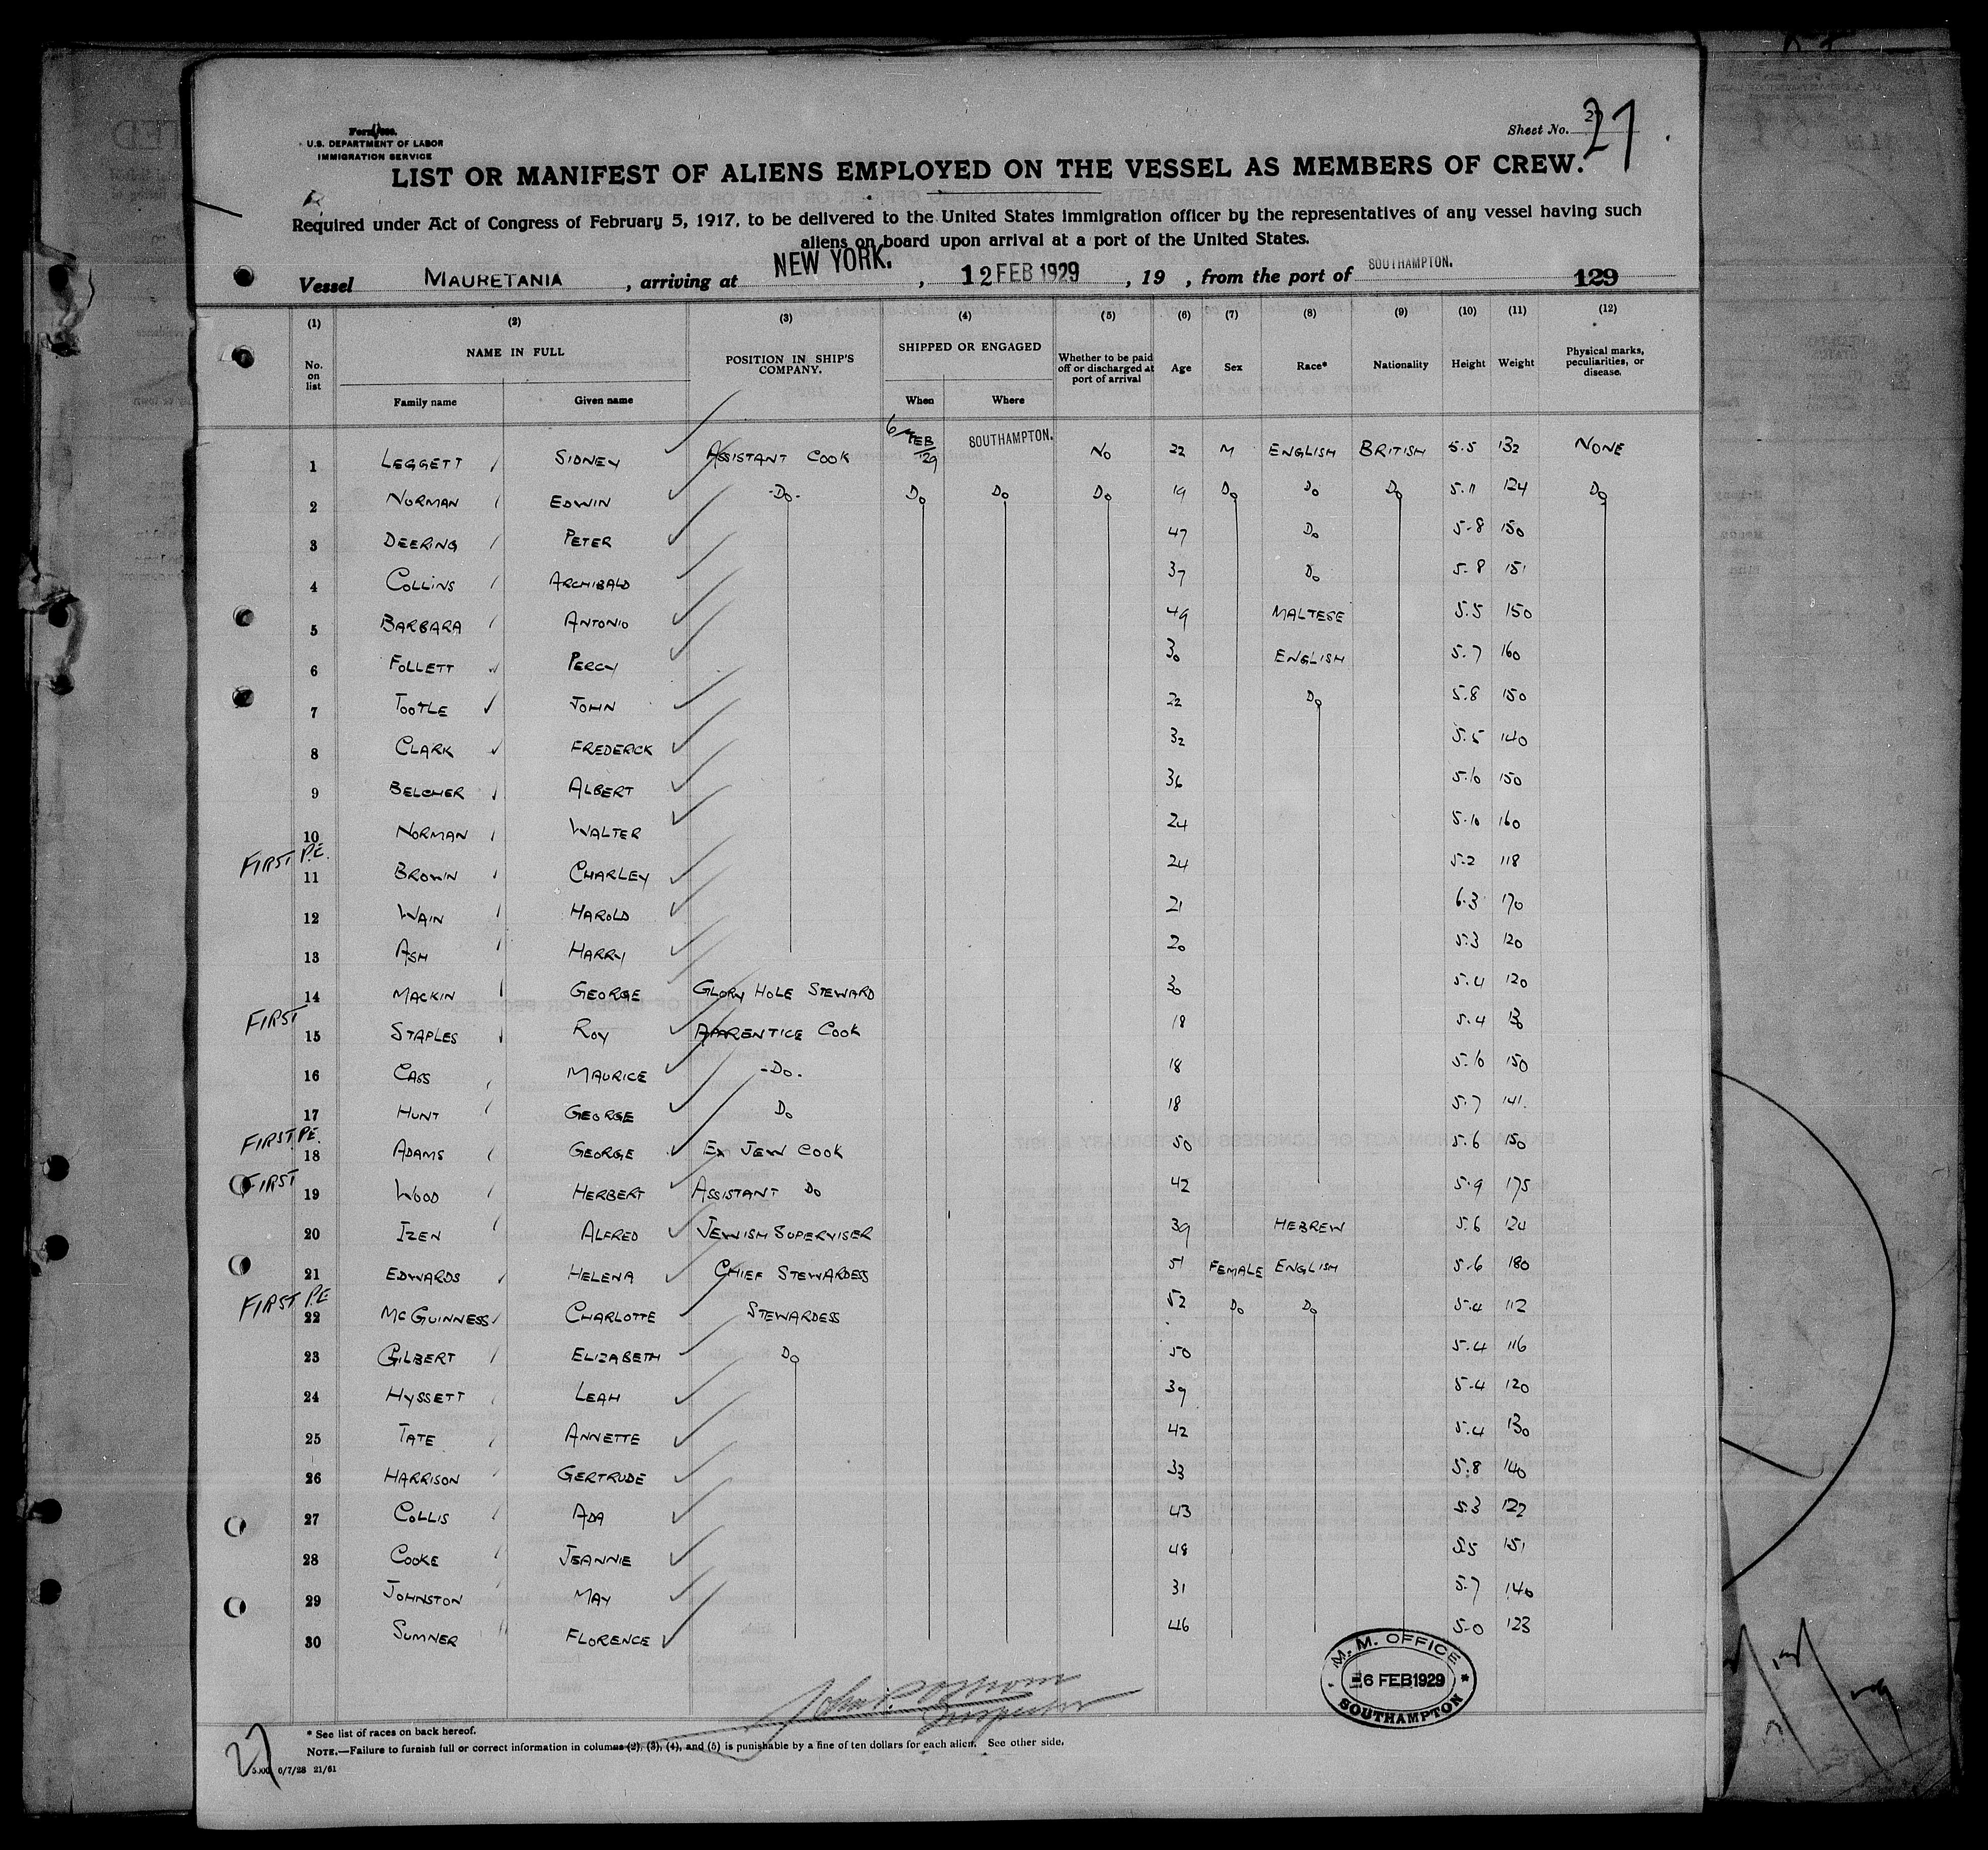 Sheet No. 27
U.S. DEPARTMENT OF LABOR
IMMIGRATION SERVICE
LIST OR MANIFEST OF ALIENS EMPLOYED ON THE VESSEL AS MEMBERS OF CREW.
Required under Act of Congress of February 5, 1917, to be delivered to the United States immigration officer by the representatives of any vessel having such
aliens on board upon arrival at a port of the United States.
Vessel MAURETANIA , arriving at NEW YORK. , 12 FEB 1929 , 19 , from the port of SOUTHAMPTON. 129
(1) (2) (3) (4) (5) (6) (7) (8) (9) (10) (11) (12)
No. on list NAME IN FULL Family name Given name POSITION IN SHIP'S COMPANY. SHIPPED OR ENGAGED When Where Whether to be paid off or discharged at port of arrival Age Sex Race* Nationality Height Weight Physical marks, peculiarities, or disease.
1 LEGGETT SIDNEY ASSISTANT COOK 6 FEB /29 SOUTHAMPTON. NO 22 M ENGLISH BRITISH 5.5 132 NONE
2 NORMAN EDWIN -DO- DO DO DO 19 DO DO DO 5.11 124 DO
3 DEERING PETER 47 DO 5-8 150
4 COLLINS ARCHIBALD 37 DO 5.8 151
5 BARBARA ANTONIO 49 MALTESE 5.5 150
6 FOLLETT PERCY 30 ENGLISH 5.7 160
7 TOOTLE JOHN 22 DO 5.8 150
8 CLARK FREDERICK 32 5.5 140
9 BELCHER ALBERT 36 5.10 150
10 NORMAN WALTER 24 5.10 160
FIRST P.E. 11 BROWN CHARLEY 24 5.2 118
12 WAIN HAROLD 21 6.3 170
13 ASH HARRY 20 5.3 120
14 MACKIN GEORGE GLORY HOLE STEWARD 30 5.4 120
FIRST 15 STAPLES ROY APPRENTICE COOK 18 5.4 130
16 CASS MAURICE -DO- 18 5.10 150
17 HUNT GEORGE DO 18 5.7 141.
FIRST P.E. 18 ADAMS GEORGE EX JEW COOK 50 5.6 150
FIRST 19 WOOD HERBERT ASSISTANT DO 42 5.9 175
20 IZEN ALFRED JEWISH SUPERVISER 39 HEBREW 5.6 120
21 EDWARDS HELENA CHIEF STEWARDESS 51 FEMALE ENGLISH 5.6 180
FIRST P.E. 22 MCGUINNESS CHARLOTTE STEWARDESS 52 DO DO 5.4 112
23 GILBERT ELIZABETH DO 50 5.4 116
24 HYSSETT LEAH 39 5.4 120
25 TATE ANNETTE 42 5.4 130
26 HARRISON GERTRUDE 33 5.8 140
27 COLLIS ADA 43 5.3 122
28 COOKE JEANNIE 48 5.5 151
29 JOHNSTON MAY 31 5.7 140
30 SUMNER FLORENCE 46 5-0 123
M. M. OFFICE
6 FEB 1929
SOUTHAMPTON
Inspector
* See list of races on back hereof.
NOTE.—Failure to furnish full or correct information in columns (2), (3), (4), and (5) is punishable by a fine of ten dollars for each alien. See other side.
27
6/7/28 21/61